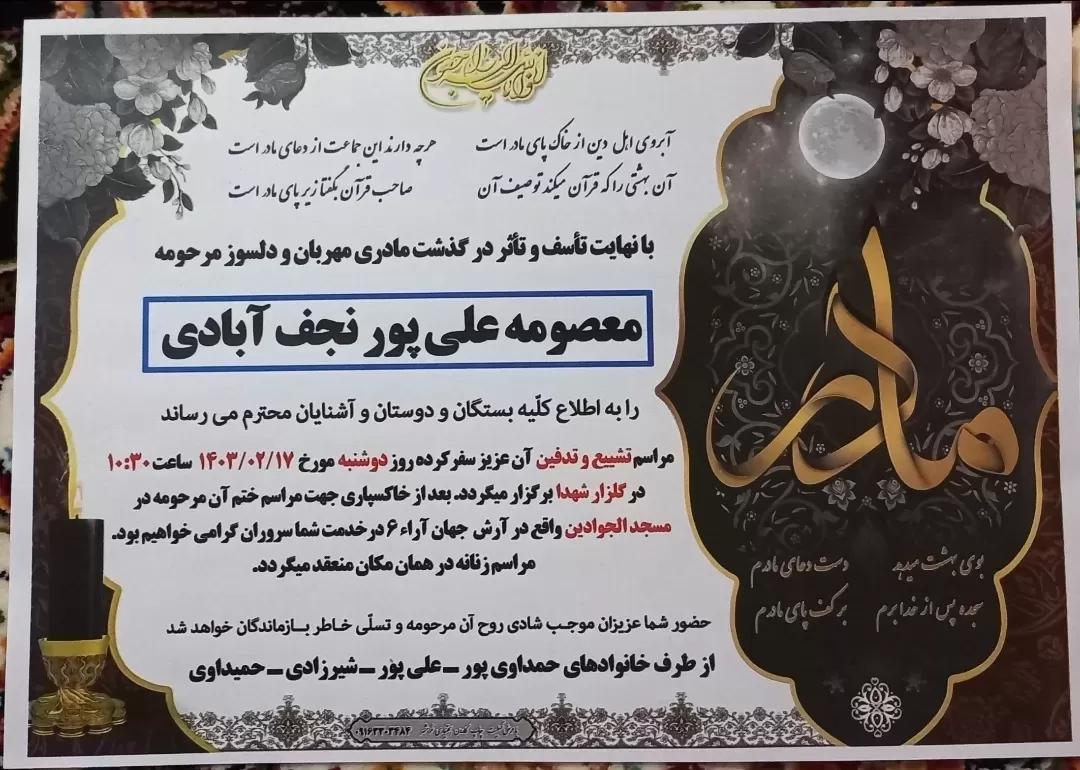 آبروی اهل دین از خاک پای مادر است هرچه دارند این جماعت از دعای مادر است
آن بهشتی را که قرآن میکند توصیف آن صاحب قرآن بگفتا زیر پای مادر است
با نهایت تأسف و تأثر در گذشت مادری مهربان و دلسوز مرحومه
معصومه علی پور نجف آبادی
را به اطلاع کلّیه بستگان و دوستان و آشنایان محترم می رساند
مراسم تشییع و تدفین آن عزیز سفر کرده روز دوشنبه مورخ ۱۴۰۳/۰۲/۱۷ ساعت ۱۰:۳۰
در گلزار شهدا برگزار میگردد. بعد از خاکسپاری جهت مراسم ختم آن مرحومه در
مسجد الجوادین واقع در آرش جهان آراء ۶ در خدمت شما سروران گرامی خواهیم بود.
مراسم زنانه در همان مکان منعقد میگردد.
حضور شما عزیزان موجب شادی روح آن مرحومه و تسلّی خاطر بازماندگان خواهد شد
از طرف خانوادهای حمداوی پور - علی پور - شیرزادی - حمیداوی
مادر
بوی بهشت میدهد دست دعای مادرم
سجده پس از خدا برم بر کف پای مادرم
۰۹۱۶۳۳۰۳۴۸۴